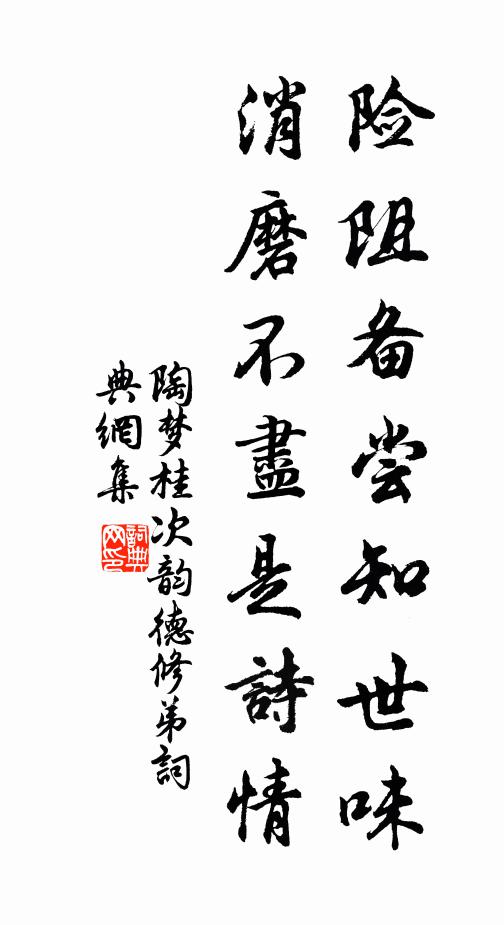 险阻备尝知世味
消磨不盡是詩情
陶梦桂次韵德修弟詞
典網集
詞典
网印